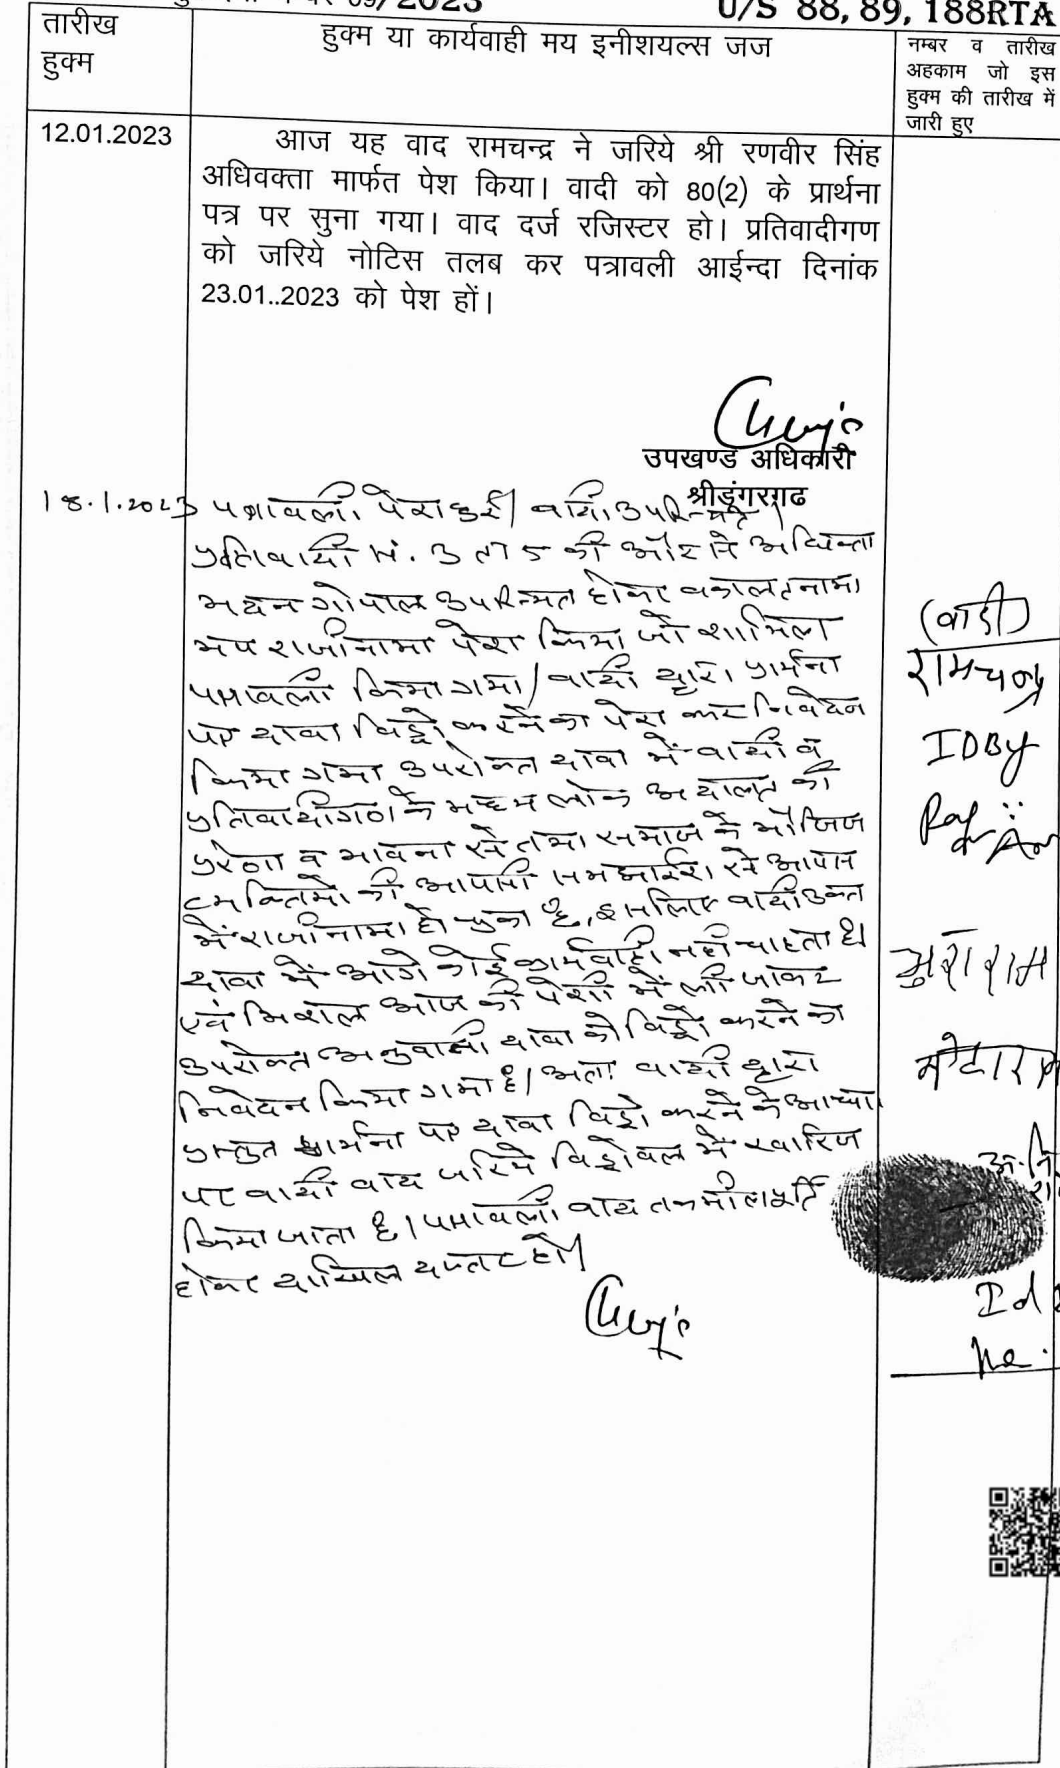 09/2023 U/S 88, 89, 188RTA
तारीख
हुक्म
हुक्म या कार्यवाही मय इनीशयल्स जज
नम्बर व तारीख
अहकाम जो इस
हुक्म की तारीख में
जारी हुए
12.01.2023
आज यह वाद रामचन्द्र ने जरिये श्री रणवीर सिंह
अधिवक्ता मार्फत पेश किया। वादी को 80(2) के प्रार्थना
पत्र पर सुना गया। वाद दर्ज रजिस्टर हो। प्रतिवादीगण
को जरिये नोटिस तलब कर पत्रावली आईन्दा दिनांक
23.01..2023 को पेश हों।
उपखण्ड अधिकारी
श्रीडूंगरगढ
18.1.2023 पत्रावली पेश हुई। वादी उपस्थित।
प्रतिवादी नं. 3 ता 5 की ओर से अधिवक्ता
मदन गोपाल उपस्थित होकर वकालतनामा
मय राजीनामा पेश किया जो शामिल
पत्रावली किया गया। वादी द्वारा प्रार्थना
पत्र दावा विड्रो करने का पेश कर निवेदन
किया गया उपरोक्त दावा में वादी व
प्रतिवादीगण के मध्य लोक अदालत की
प्रेरणा व भावना से तथा समाज के मौजिज
व्यक्तियों की आपसी समझाईश से आपस
में राजीनामा हो चुका है, इसलिए वादी उक्त
दावा में आगे कोई कार्यवाही नहीं चाहता है।
एवं मिशल आज की पेशी में ली जाकर
उपरोक्त अनुवानी दावा को विड्रो करने का
निवेदन किया गया है। अतः वादी द्वारा
प्रस्तुत प्रार्थना पत्र दावा विड्रो करने के आधार
पर वादी वाद जरिये विड्रोवल में खारिज
किया जाता है। पत्रावली बाद तकमील पूर्ति
होकर दाखिल दफ्तर हो।
(वादी)
रामचन्द्र
IDBy